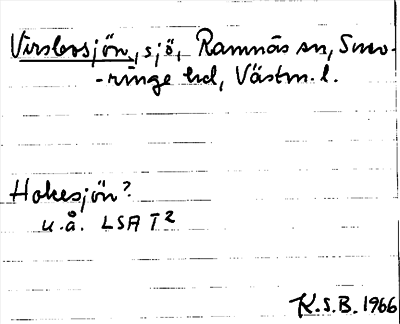 Virsbosjön, sjö, Ramnäs sn, Snev-
-ringe hd, Västm. l.
Hakesjön?
u.å. LSA T2
K.S.B. 1966